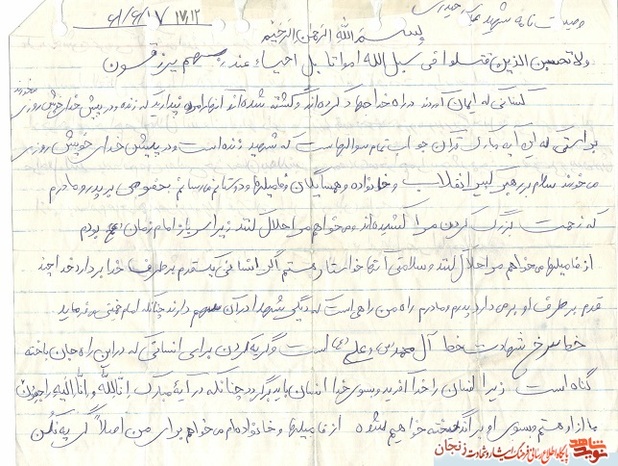 وصیت نامه شهید حیدری
۶۱/۶/۱۷ ۱۷:۱۲
بسم الله الرحمن الرحیم
ولا تحسبن الذین قتلوا فی سبیل الله امواتا بل احیاء عند ربهم یرزقون
کسانی که ایمان آوردند در راه خدا جهاد کرده‌اند و کشته شده‌اند آنها مرده نپندارید که زنده و در پیش خدای خویش روزی میخورند
براستی که این آیه مبارک قرآن جواب تمام سوالهاست که شهید زنده است و در پیش خدای خویش روزی
می‌خورند سلام بر رهبر کبیر انقلاب و خانواده و همسایگان و فامیلها و دوستانم میرسانم بخصوص بر پدر و مادرم
که زحمت بزرگ کردن مرا کشیده‌اند و میخواهم مرا حلال کنند زیرا سرباز امام زمان عج بودم
از فامیلها می‌خواهم مرا حلال کنند و سلامتی آنها خداست هستم اگر انسانی یک قدم بر طرف خدا بردارد خدا چند
قدم بر طرف او بر می دارد پدرم و مادرم راه من راهی است که دیگر شهدا در آن سهم دارند چنانکه امام خمینی می‌فرماید
خط سرخ شهادت خط آل محمد ص و علی است و گریه کردن برای انسانی که در این راه جان باخته
گناه است زیرا انسان را خدا آفرید و بسوی خدا انسان باید برگردد چنانکه در آیه مبارک انا لله و انا الیه راجعون
ما از او هستم و بسوی او برانگیخته خواهیم شد از فامیلها و خانواده‌ام می‌خواهم برای من اصلا گریه نکن
نوید شاهد
پایگاه اطلاع رسانی فرهنگ ایثار و شهادت زنجان